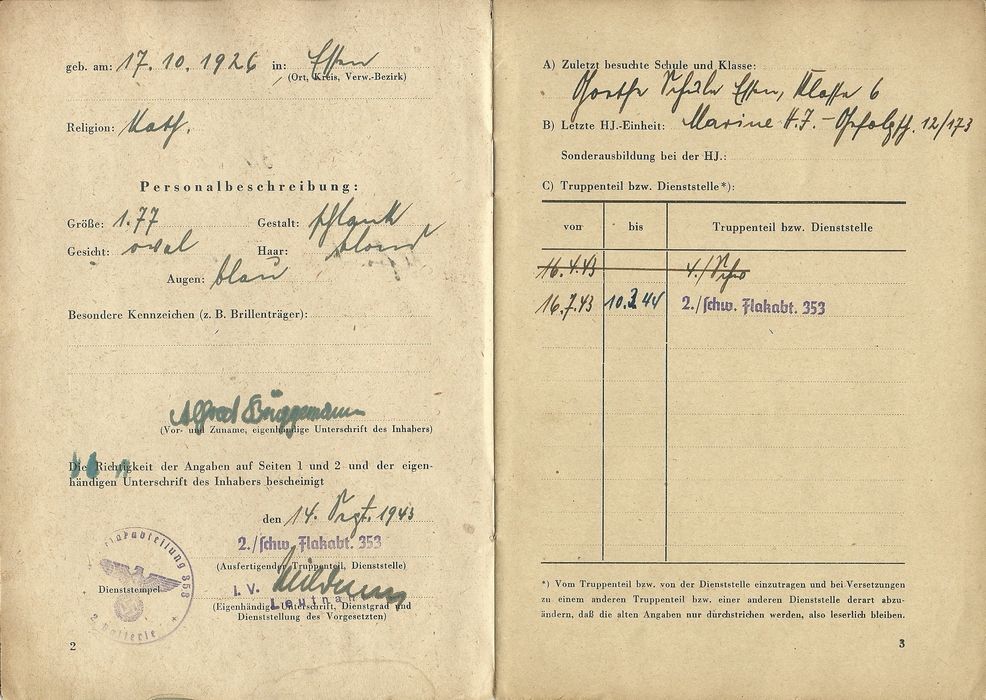 geb. am: 17. 10. 1926 in: Essen
(Ort, Kreis, Verw.-Bezirk)
Religion: Kath.
Personalbeschreibung:
Größe: 1.77 Gestalt: schlank
Gesicht: oval Haar: blond
Augen: blau
Besondere Kennzeichen (z. B. Brillenträger):
Alfred Brüggemann
(Vor- und Zuname, eigenhändige Unterschrift des Inhabers)
Die Richtigkeit der Angaben auf Seiten 1 und 2 und der eigen-
händigen Unterschrift des Inhabers bescheinigt
den 14. Sept. 1943
2./schw. Flakabt. 353
(Ausfertigender Truppenteil, Dienststelle)
I. V.
Leutnant
(Eigenhändige Unterschrift, Dienstgrad und
Dienststellung des Vorgesetzten)
Flakabteilung 353
Dienststempel
2. Batterie
2
A) Zuletzt besuchte Schule und Klasse:
Goethe Schule Essen, Klasse 6
B) Letzte HJ.-Einheit: Marine H.J. - Gefolgsch. 12/173
Sonderausbildung bei der HJ.:
C) Truppenteil bzw. Dienststelle*):
von bis Truppenteil bzw. Dienststelle
16.4.43 4./
16.7.43 10.3.44 2./schw. Flakabt. 353
*) Vom Truppenteil bzw. von der Dienststelle einzutragen und bei Versetzungen
zu einem anderen Truppenteil bzw. einer anderen Dienststelle derart abzu-
ändern, daß die alten Angaben nur durchstrichen werden, also leserlich bleiben.
3